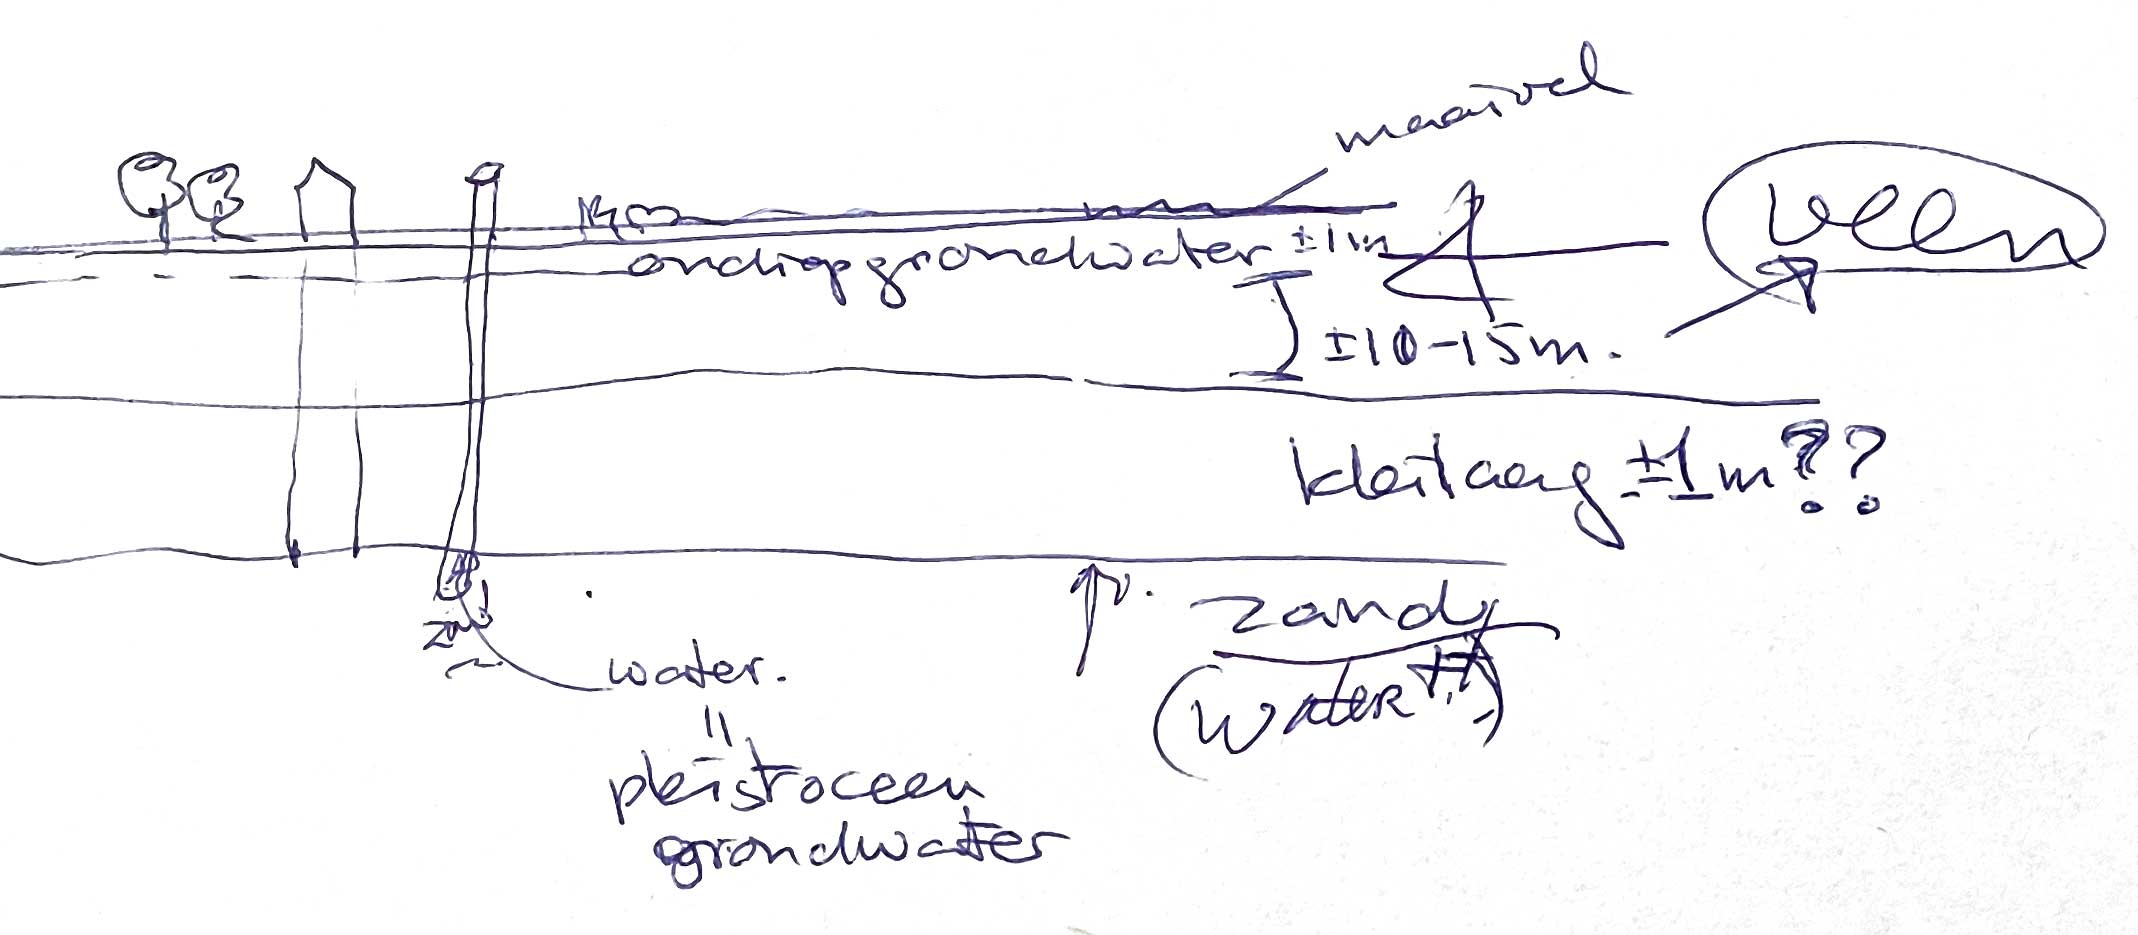 maaivel
veen
ondiep grondwater ±1m
±10-15m.
kleilaag ±1m??
zand
water.
zand
(water ++)
=
pleistroceen
grondwater